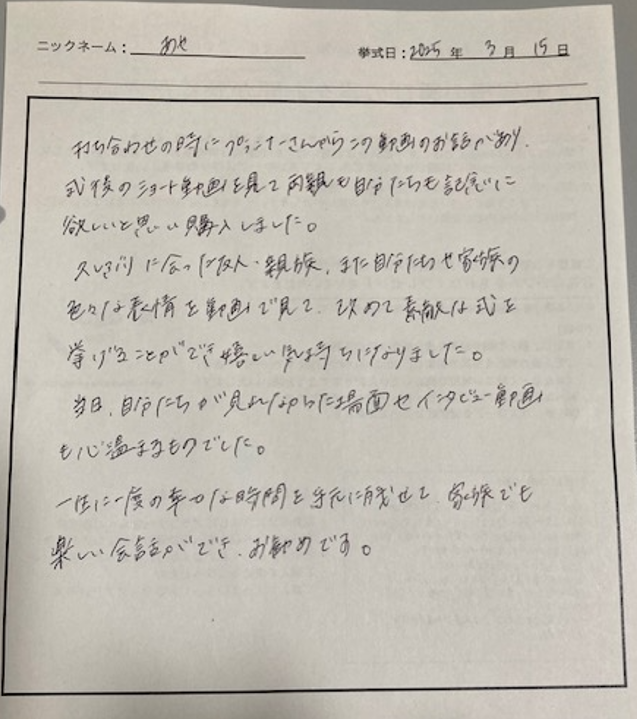 ニックネーム: あせ 挙式日: 2025 年 3 月 15 日
打ち合わせの時にプランナーさんからこの動画のお話があり、
式後のショート動画を見て両親も自分たちも記念に
欲しいと思い購入しました。
久しぶりに会った友人・親族、また自分たちや家族の
色々な表情を動画で見て、改めて素敵な式を
挙げることができ嬉しい気持ちになりました。
当日、自分たちが見れなかった場面やインタビュー動画
も心温まるものでした。
一生に一度の幸せな時間を手元に残せて、家族でも
楽しい会話ができ、お勧めです。